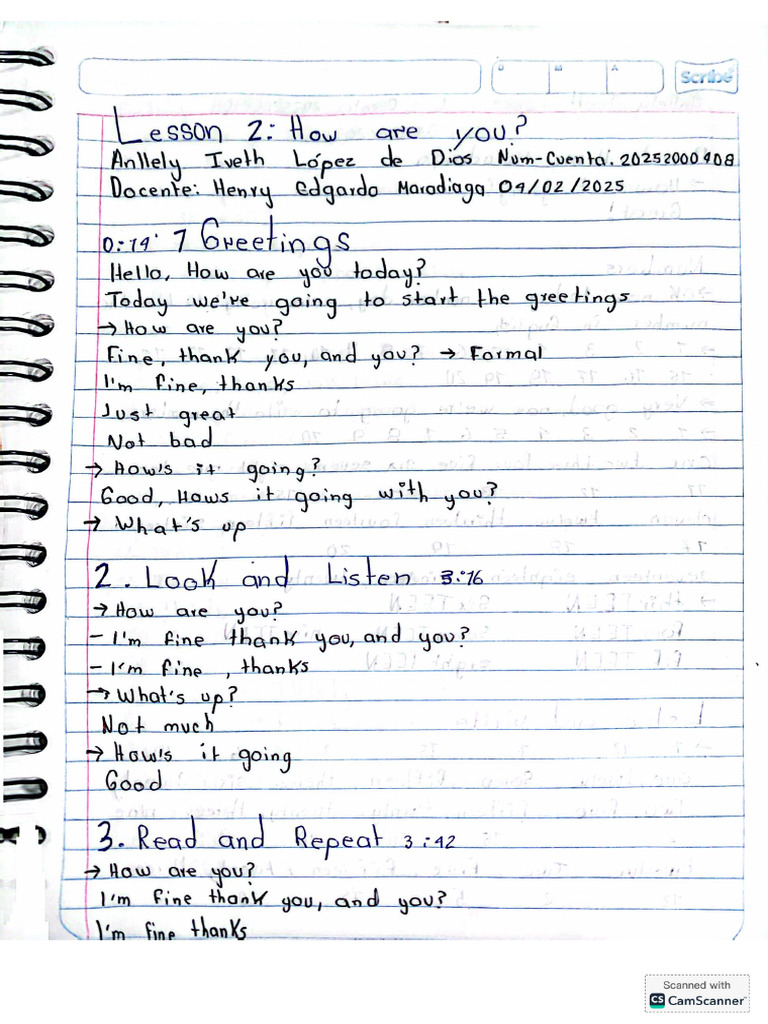 D M A Scribe
Lesson 2: How are you?
Anllely Iveth López de Dios Num-Cuenta. 20252000908
Docente: Henry Edgardo Maradiaga 04/02/2025
0:14' 1 Greetings
Hello, How are you today?
Today we're going to start the greetings
→ How are you?
Fine, thank you, and you? → Formal
I'm fine, thanks
Just great
Not bad
→ How's it going?
Good, Hows it going with you?
→ What's up
2. Look and Listen 3:16
→ How are you?
- I'm fine thank you, and you?
- I'm fine, thanks
→ What's up?
Not much
→ How's it going
Good
3. Read and Repeat 3:42
→ How are you?
I'm fine thank you, and you?
I'm fine thanks
Scanned with
CS CamScanner